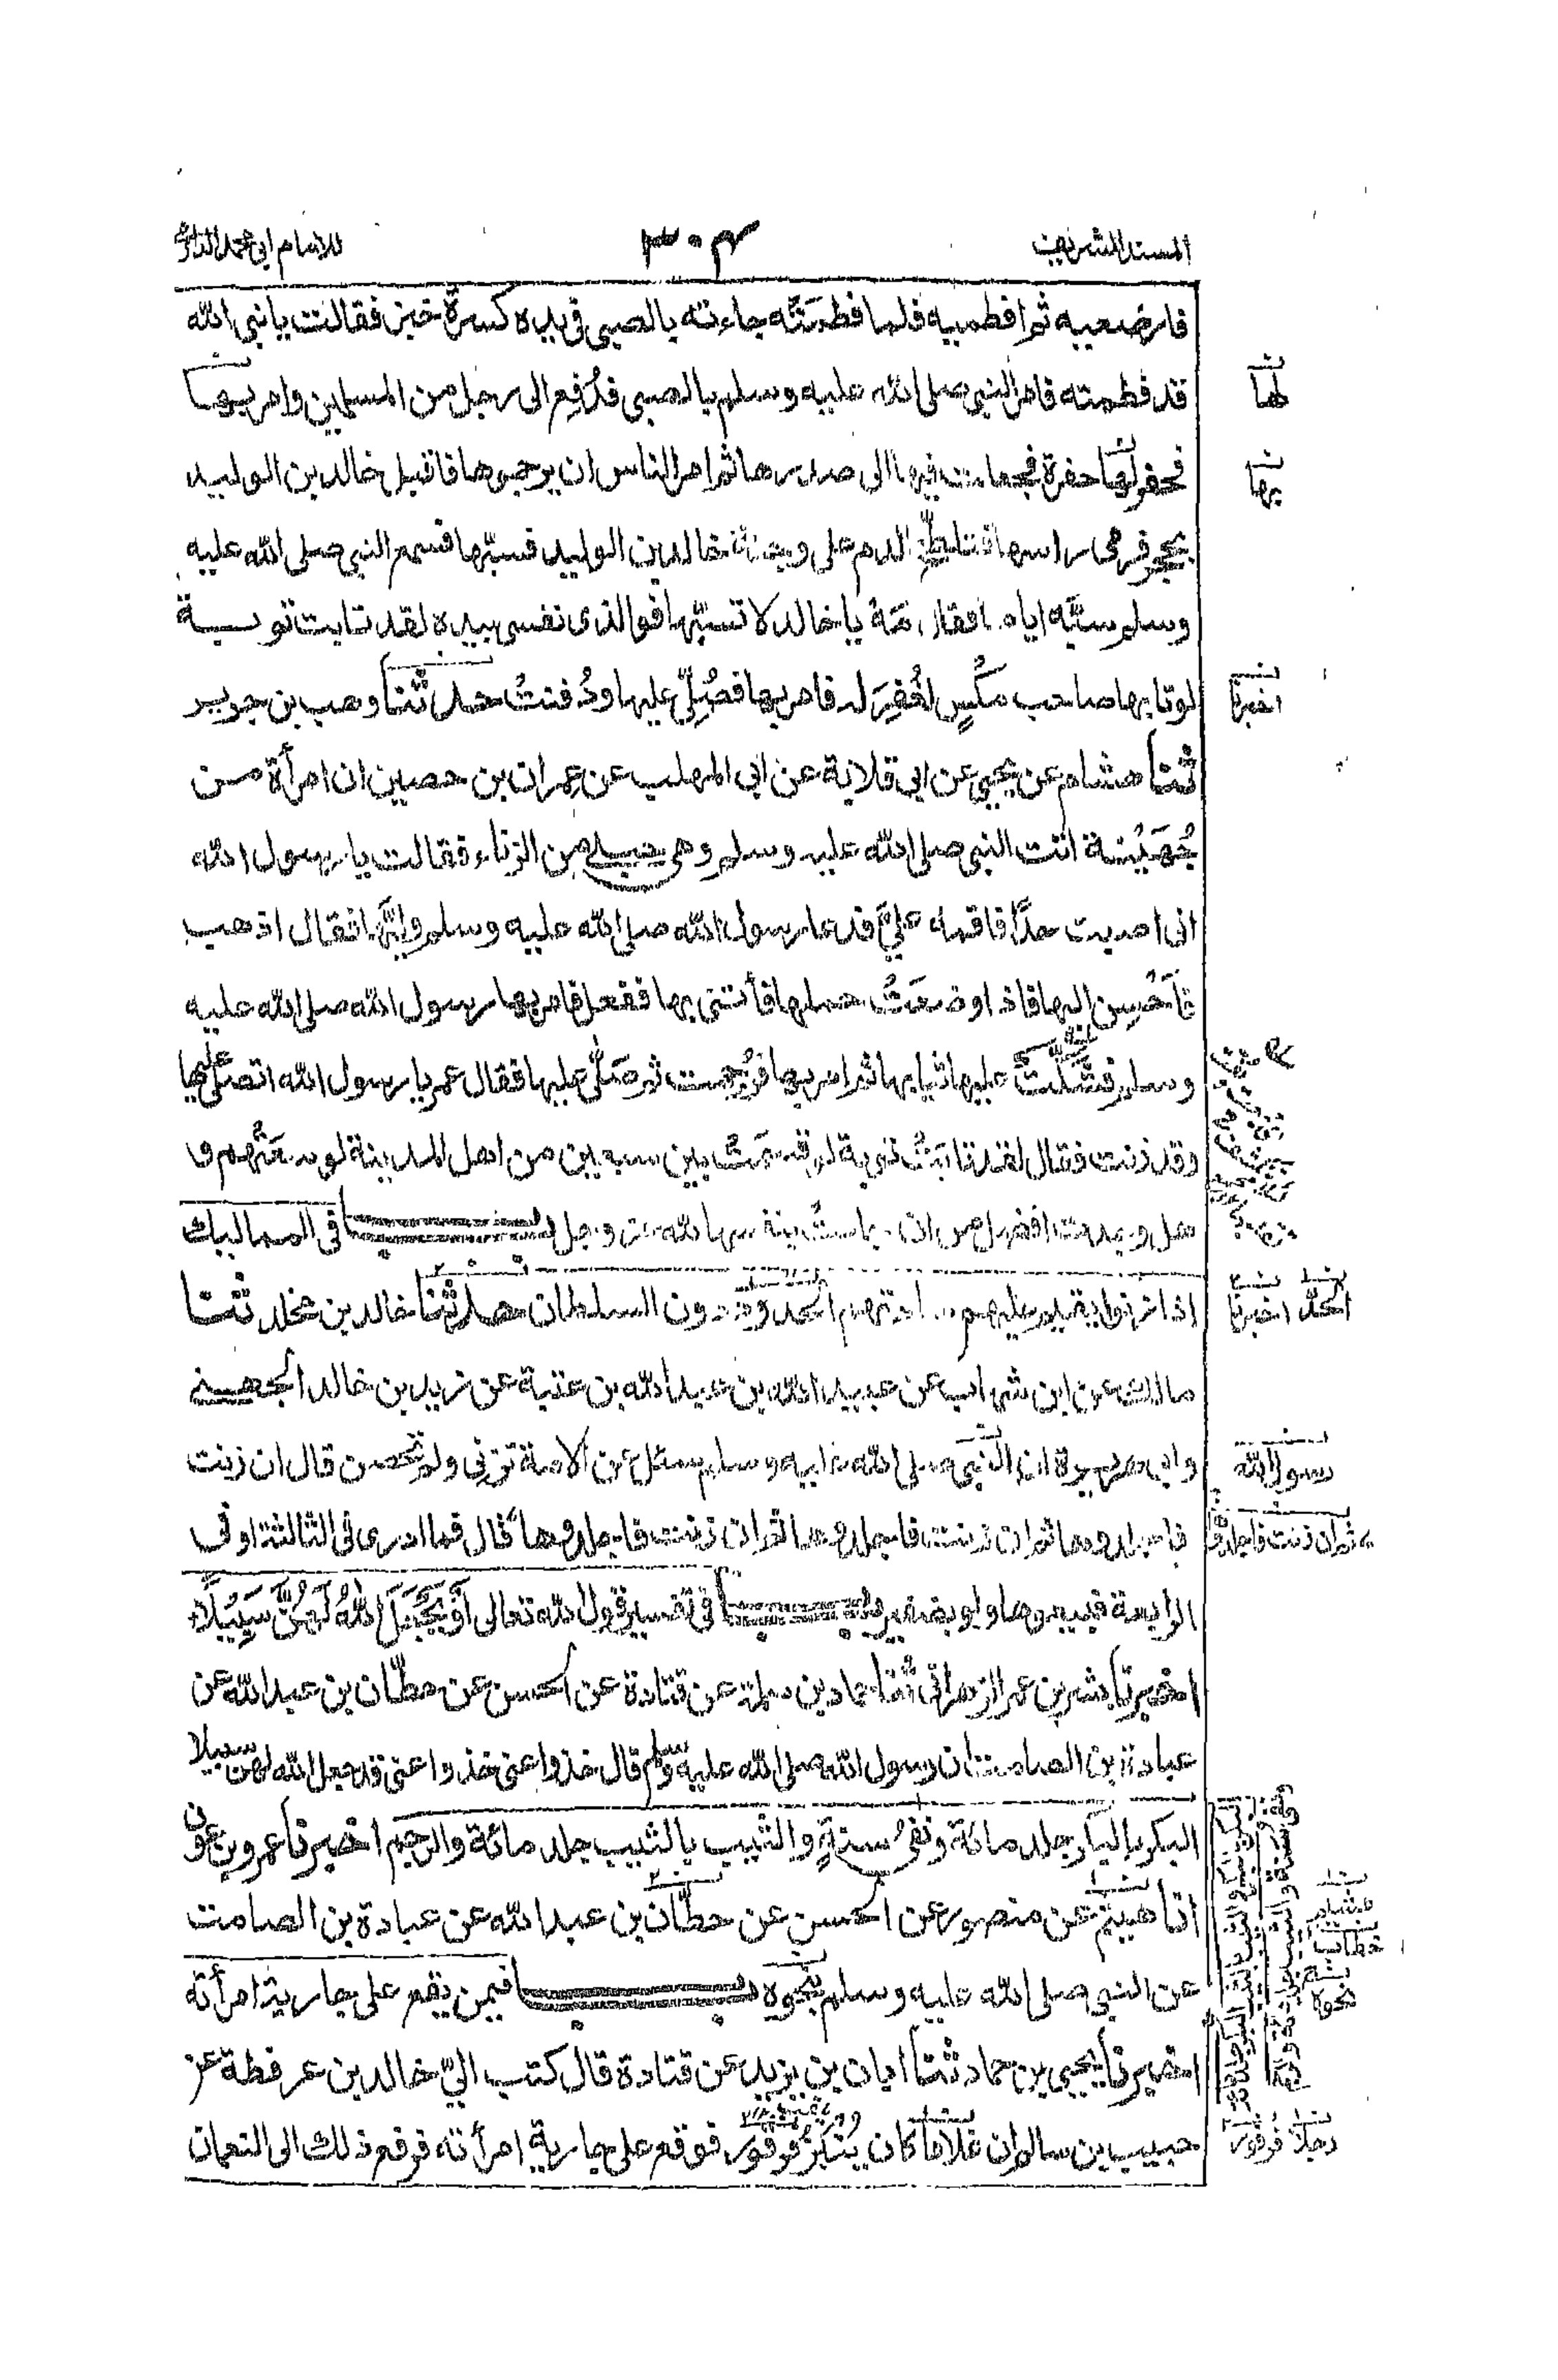 المسند الشريف
٣٠٤
للامام ابى محمد الدارمى
فارضعيه ثم افطميه فلما فطمَتْه جاءته بالصبى فى يده كسرة خبز فقالت يا نبى الله
قد فطمته فامر النبى صلى الله عليه وسلم بالصبى فدُفِع الى رجل من المسلمين وامر بها
فحفر لها حفرة فجعلت فيها الى صدرها ثم امر الناس ان يرجموها فاقبل خالد بن الوليد
بحجر فرمى راسها فتلطخ الدم على وجنة خالد بن الوليد فسبّها فسمع النبى صلى الله عليه
وسلم سبَّه اياها فقال مَهْ يا خالد لا تسبّها فوالذى نفسى بيده لقد تابت توبة
لو تابها صاحب مَكْسٍ لغُفِرَ له فامر بها فصُلِّىَ عليها ودُفنتْ حدثنا وهب بن جرير
ثنا هشام عن يحيى عن ابى قلابة عن ابى المهلب عن عمران بن حصين ان امرأة من
جُهَيْنة اتت النبى صلى الله عليه وسلم وهى حبلى من الزناء فقالت يا رسول الله
انى اصبت حدًّا فاقمه علىَّ فدعا رسول الله صلى الله عليه وسلم وليَّها فقال اذهب
فاَحْسِن اليها فاذا وضعَتْ حملها فأتنى بها ففعل فامر بها رسول الله صلى الله عليه
وسلم فشُكَّتْ عليها ثيابها ثم امر بها فرُجمت ثم صَلَّى عليها فقال عمر يا رسول الله اتصلّى عليها
وقد زنت فقال لقد تابَتْ توبة لو قسمَتْ بين سبعين من اهل المدينة لوسعَتْهم و
هل وجدت افضل من ان جادتْ بنفسها لله عز وجل باب فى المماليك
اذا زنوا يقيم عليهم سادتهم الحد دون السلطان حدثنا خالد بن مخلد ثنا
مالك عن ابن شهاب عن عبيد الله بن عبد الله بن عتبة عن زيد بن خالد الجهنى
وابى هريرة ان النبى صلى الله عليه وسلم سئل عن الامة تزنى ولم تحصن قال ان زنت
فاجلدوها ثم ان زنت فاجلدوها ثم ان زنت فاجلدوها قال فما ادرى فى الثالثة او فى
الرابعة فبيعوها ولو بضفير باب فى تفسير قول الله تعالى أَوْ يَجْعَلَ اللّٰهُ لَهُنَّ سَبِيْلًا
اخبرنا بشر بن عمر الزهرانى ثنا حماد بن سلمة عن قتادة عن الحسن عن حطّان بن عبد الله عن
عبادة بن الصامت ان رسول الله صلى الله عليه وسلم قال خذوا عنى خذوا عنى قد جعل الله لهن سبيلا
البكر بالبكر جلد مائة ونفىُ سنةٍ والثيب بالثيب جلد مائة والرجم اخبرنا عمرو بن عون
انا هشيم عن منصور عن الحسن عن حطّان بن عبد الله عن عبادة بن الصامت
عن النبى صلى الله عليه وسلم بنحوه باب فيمن يقع على جارية امرأته
اخبرنا يحيى بن حماد ثنا ابان بن يزيد عن قتادة قال كتب الىّ خالد بن عرفطة عن
حبيب بن سالم ان غلاما كان يُنْبَزُ قرقور فوقع على جارية امرأته فرفع ذلك الى النعمان
لها
بها
اخبرنا
الحدَّ اخبرنا
رسول الله
ثم ان زنت فاجلدوها
هشام
خطاب
نحوه
رجلا قرقور